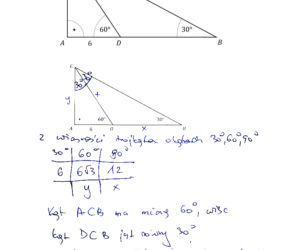 60° 30°
A 6 D B
C
30° 30°
y x
60° 30°
A 6 D x B
z własności trójkąta o kątach 30°, 60°, 90°
30° 60° 90°
6 6√3 12
y x
kąt ACB ma miarę 60°, więc
kąt DCB jest równy 30°